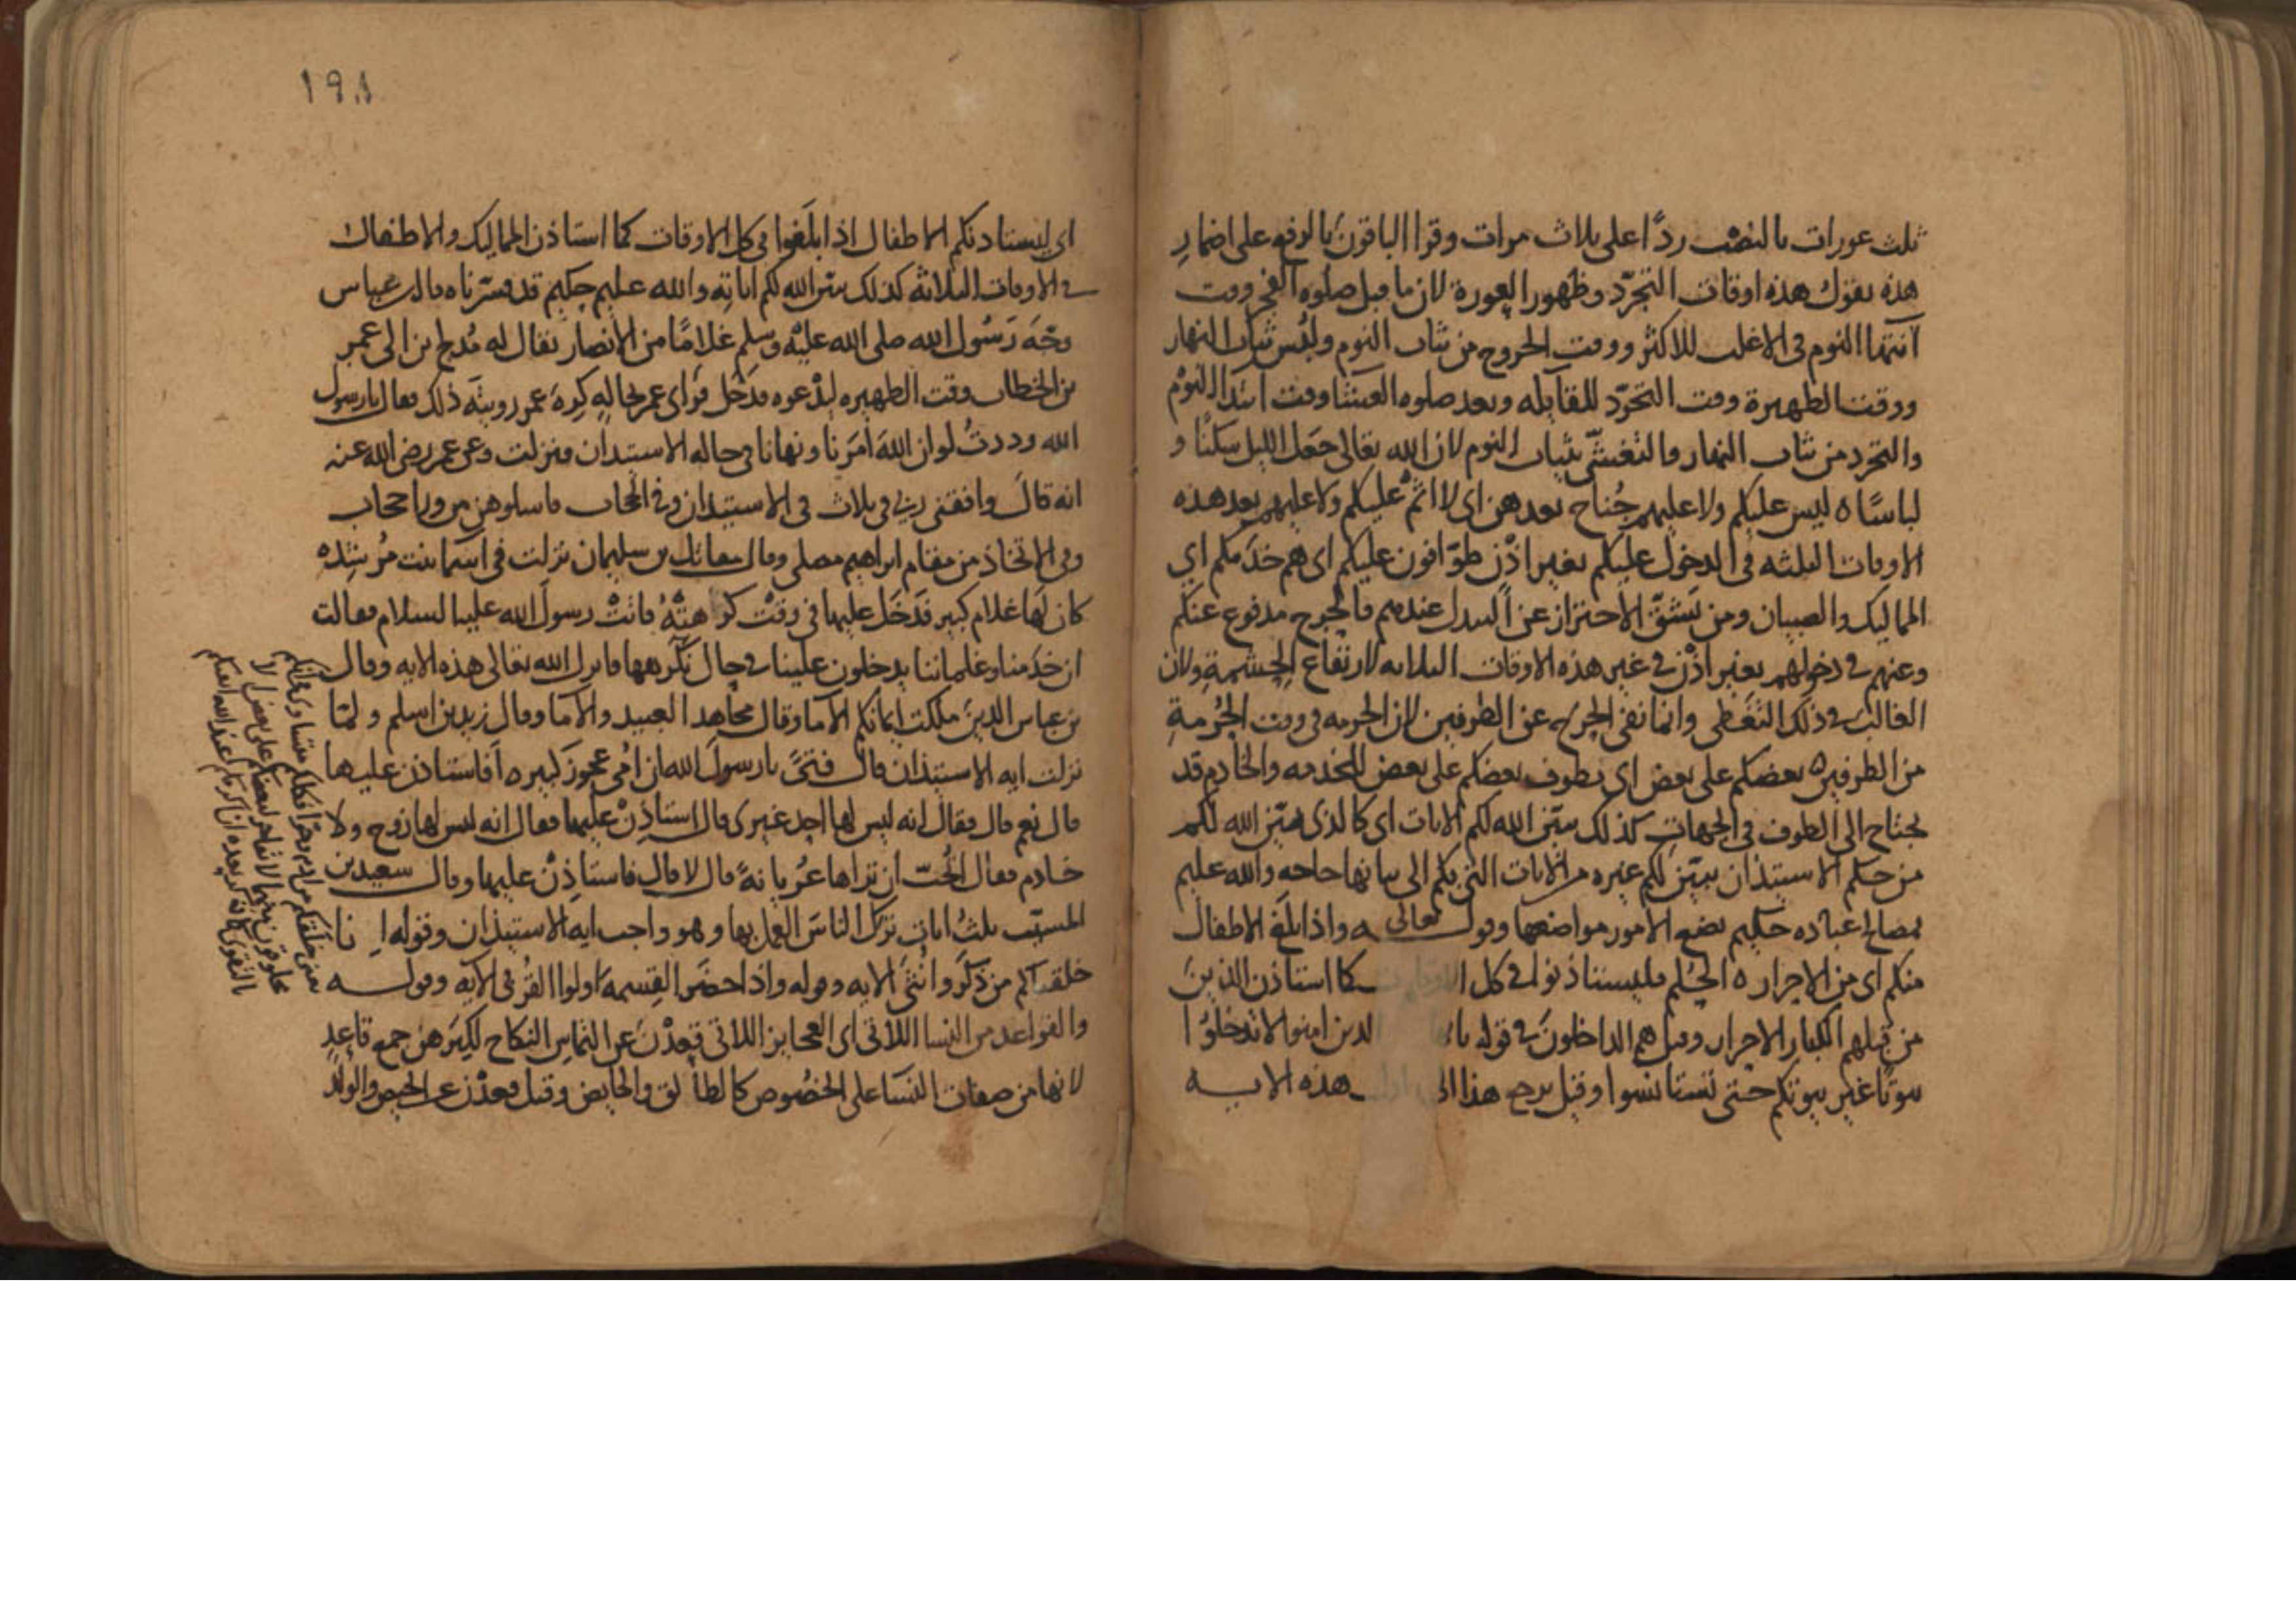 ثلث عورات بالنصب ردًّا على ثلاث مرات وقرا الباقون بالرفع على اضمار
هذه يقول هذه اوقات التجرّد وظهور العورة لان ما قبل صلوه الفجر وقت
انتها النوم في الاغلب للاكثر ووقت الخروج من ثياب النوم ولبس ثياب النهار
ووقت الظهيرة وقت التجرّد للقايله وبعد صلوه العشا وقت ابتدا النوم
والتجرد من ثياب النهار والتغشّي بثياب النوم لان الله تعالى جعل الليل سكنًا و
لباسًا ه ليس عليكم ولا عليهم جُناح بعدهن اي لا اثم عليكم ولا عليهم بعد هذه
الاوقات الثلثه في الدخول عليكم بغير اذْن طوّافون عليكم اي هم خدمكم اي
المماليك والصبيان ومن يَشقّ الاحتراز عن التبدل عندهم فالحرج مدفوع عنكم
وعنهم في دخولهم بغير اذْن في غير هذه الاوقات الثلاثه لارتفاع الحِشمةِ ولان
الغالبَ في ذلك التغطي وانما نفى الحرج عن الطرفين لان الحرمه في وقت الحُرمةِ
من الطرفين ه بعضكم على بعض اي يطوف بعضكم على بعض للخدمه والخادم قد
يحتاج الى الطوف في الجهاتِ كذلك يبيّن الله لكم الايات اي كالذي بيّن الله لكم
من حكم الاستيذان يبيّن لكم غيره من الايات التي بكم الى بيانها حاجه والله عليم
بمصالح عباده حكيم يضع الامور مواضعها وقوله تعالى واذا بلغ الاطفال
منكم اي من الاحرار ه الحُلم فليستاذنوا في كل الاوقات كما استاذن الذين
من قبلهم الكبار الاحرار وقيل هم الداخلون في قوله يا الذين امنوا لا تدخلُوا
بيوتًا غير بيوتكم حتى تستانسوا وقيل يرجع هذا الى هذه الايه
١٩٨
اي ليستاذنكم الاطفال اذا بلَغوا في كل الاوقات كما استاذن المماليك والاطفال
في الاوقات الثلاثه كذلك يبيّن الله لكم اياته والله عليم حكيم قد فسّرناه قال بن عباس
وجّه رَسُول الله صلى الله عليْه وسلم غلامًا من الانصار يقال له مُدلج بن الى عمر
بن الخطاب وقت الظهيره ليدْعوه فدَخل فرَاى عمر بحالهٍ كرِهَ عمر رويتَه ذلك فقال يا رسول
الله وددتُ لو ان الله امَرنا ونهانا في حاله الاستيذان فنزلت وعن عمر رضي الله عنه
انه قال وافقني ربي في ثلاث في الاستيذان وفي الحجاب فاسلوهن من ورا حجاب
وفي الاتخاذ من مقام ابراهيم مصلى وقال مقاتل بن سليمان نزلت في اسما بنت مُرشِده
كان لها غلام كبير فدَخل عليها في وقت كراهتْهُ فاتتْ رسولَ الله عليه السلام فقالت
ان خدمنا وغلماننا يدخلون علينا في حال نكرهها فانزل الله تعالى هذه الايه وقال
بن عباس الذين ملكت ايمانكم الاما وقال مجاهد العبيد والاما وقال زيد بن اسلم ولمّا
نزلت ايه الاستيذان قال فتىً يا رسولَ الله ان امي عجوز كبيره افاستاذن عليها
قال نعم قال فقال انه ليس لها احد غيري قال استاذِنْ عليها فقال انه ليس لها زوج ولا
خادم فقال اتُحبّ ان تراها عُريانةً قال لا قال فاستاذِنْ عليها وقال سعيد بن
المسيّب ثلثُ اياتٍ ترَكَ الناسَ العمل بها وهو واجب ايه الاستيذان وقوله انا
خلقناكم من ذَكَرٍ وانثى الايه وقوله واذا حضَر القِسمه اولوا القُربى الايه وقوله
والقواعد من النسا اللاتي اي العجايز اللاتي قعدْنَ عن التماسِ النكاح لكِبَرهن جمع قاعدٍ
لانها من صفات النسَا على الخصُوص كالطالق والحايض وقيل قعدْن عن الحيض والولَد
يعني خلقكم من ادم وحوا فكلكم متساوي